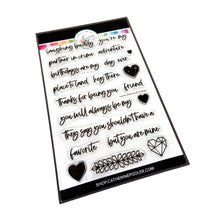 laughing buddy you're my
partner in crime adventure
birthdays are my day ever
place to land hey there
thanks for being you friend
you will always be my
they say you shouldn't have a
favorite but you are mine
SHOP.CATHERINEPOOLER.COM